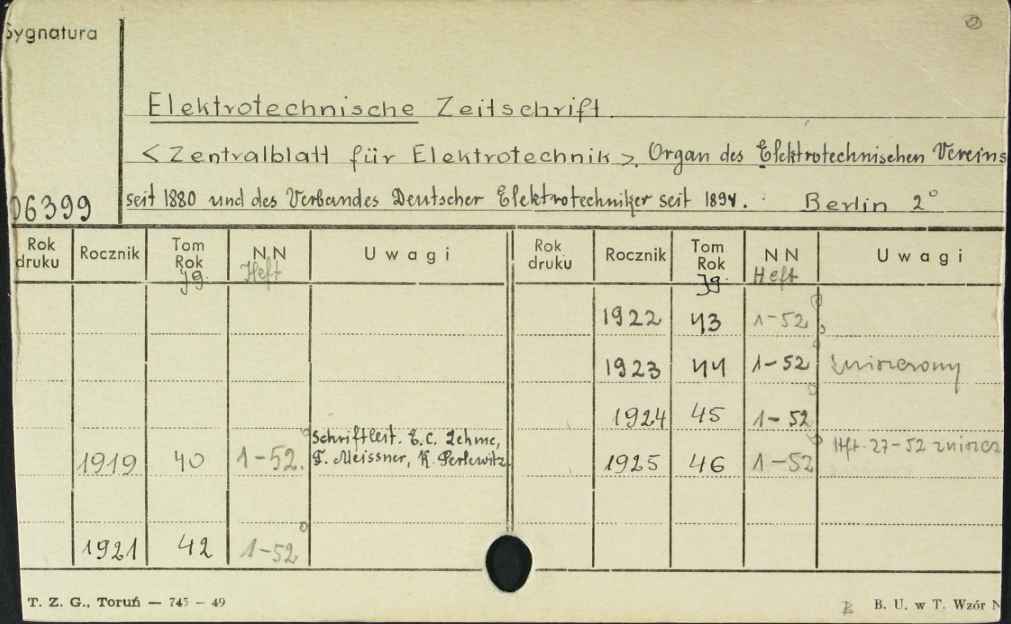 Sygnatura
Elektrotechnische Zeitschrift.
< Zentralblatt für Elektrotechnik >. Organ des Elektrotechnischen Vereins
06399 seit 1880 und des Verbandes Deutscher Elektrotechniker seit 1894. Berlin 2°
Rok druku Rocznik Tom Rok Jg. NN Heft Uwagi Rok druku Rocznik Tom Rok Jg. NN Heft Uwagi
1922 43 1-52
1923 44 1-52 zniszczony
1924 45 1-52
Schriftleit. E.C. Zehme,
1919 40 1-52. F. Meissner, K. Perlewitz. 1925 46 1-52 Hft. 27-52 zniszcz
1921 42 1-52
T. Z. G., Toruń — 745 - 49
B. U. w T. Wzór N